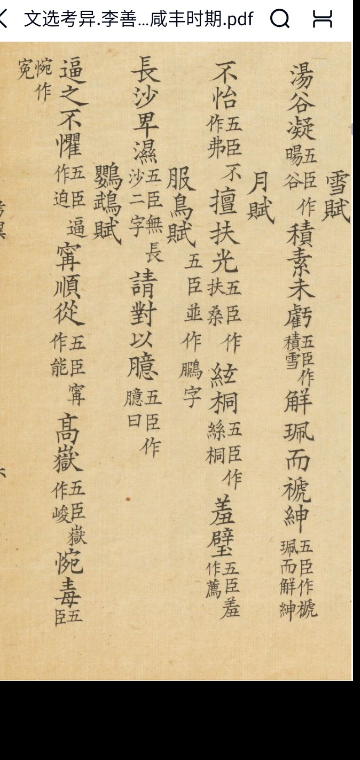 文选考异.李善...咸丰时期.pdf
雪賦
湯谷凝五臣作暘谷積素未虧五臣作積雪解珮而褫紳五臣作褫珮而解紳
月賦
不怡五臣不作弗擅扶光五臣作扶桑絃桐五臣作絲桐羞璧五臣羞作薦
服鳥賦五臣並作鵩字
長沙卑濕五臣無長沙二字請對以臆五臣作臆曰
鸚鵡賦
逼之不懼五臣逼作迫寗順從五臣寗作能高嶽五臣嶽作峻惋毒五臣
惋作寃